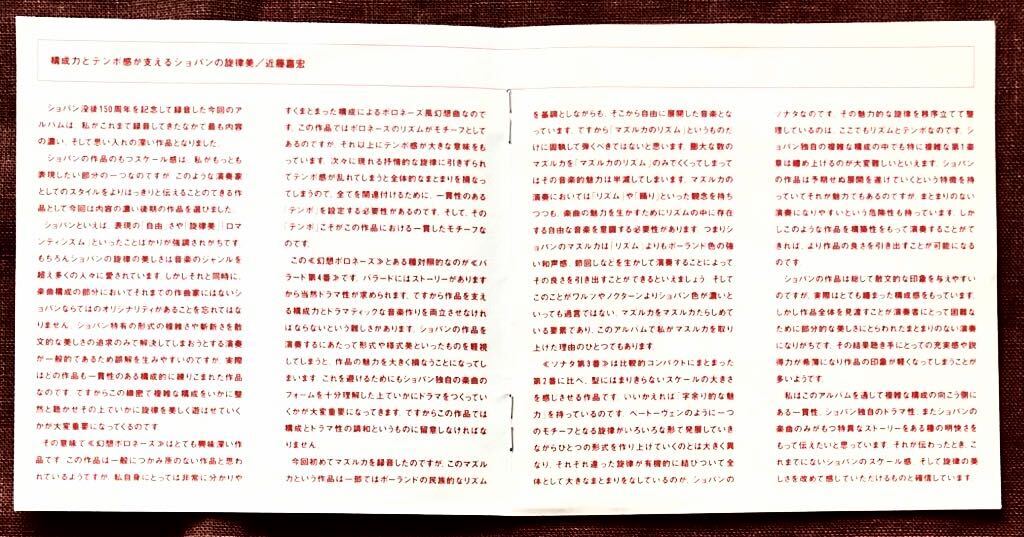 構成力とテンポ感が支えるショパンの旋律美／近藤嘉宏
ショパン没後150周年を記念して録音した今回のア
ルバムは、私がこれまで録音してきたなかで最も内容
の濃い、そして思い入れの深い作品となりました。
ショパンの作品のもつスケール感は、私がもっとも
表現したい部分の一つなのですが、このような演奏家
としてのスタイルをよりはっきりと伝えることのできる作
品として今回は内容の濃い後期の作品を選びました。
ショパンといえば、表現の「自由」さや「旋律美」「ロマ
ンティシズム」といったことばかりが強調されがちです。
もちろんショパンの旋律の美しさは音楽のジャンルを
超え多くの人々に愛されています。しかしそれと同時に、
楽曲構成の部分においてそれまでの作曲家にはないショ
パンならではのオリジナリティがあることを忘れてはな
りません。ショパン特有の形式の複雑さや斬新さを散
文的な美しさの追求のみで解決してしまおうとする演奏
が一般的であるため誤解を生みやすいのですが、実際
はどの作品も一貫性のある構成的に練りこまれた作品
なのです。ですからこの緻密で複雑な構成をいかに整
然と聴かせその上でいかに旋律を美しく遊ばせていく
かが大変重要になってくるのです。
その意味で≪幻想ポロネーズ≫はとても興味深い作
品です。この作品は一般につかみ所のない作品と思わ
れているようですが、私自身にとっては非常に分かりや
すくまとまった構成によるポロネーズ風幻想曲なので
す。この作品ではポロネーズのリズムがモチーフとして
あるのですが、それ以上にテンポ感が大きな意味をも
っています。次々に現れる抒情的な旋律に引きずられ
てテンポ感が乱れてしまうと全体的なまとまりを損なっ
てしまうので、全てを関連付けるために、一貫性のある
「テンポ」を設定する必要性があるのです。そして、その
「テンポ」こそがこの作品における一貫したモチーフな
のです。
この≪幻想ポロネーズ≫とある種対照的なのが≪バ
ラード第4番≫です。バラードにはストーリーがあります
から当然ドラマ性が求められます。ですから作品を支え
る構成力とドラマティックな音楽作りを両立させなけれ
ばならないという難しさがあります。ショパンの作品を
演奏するにあたって形式や様式美といったものを軽視
してしまうと、作品の魅力を大きく損なうことになってし
まいます。これを避けるためにもショパン独自の楽曲の
フォームを十分理解した上でいかにドラマをつくってい
くかが大変重要になってきます。ですからこの作品では
構成とドラマ性の調和というものに留意しなければな
りません。
今回初めてマズルカを録音したのですが、このマズル
カという作品は一部ではポーランドの民族的なリズム
を基調としながらも、そこから自由に展開した音楽とな
っています。ですから「マズルカのリズム」というものだ
けに固執して弾くべきではないと思います。膨大な数の
マズルカを「マズルカのリズム」のみでくくってしまって
はその音楽的魅力は半減してしまいます。マズルカの
演奏においては「リズム」や「踊り」といった観念を持ち
つつも、楽曲の魅力を生かすためにリズムの中に存在
する自由な音楽を意識する必要性があります。つまりシ
ョパンのマズルカは「リズム」よりもポーランド色の強
い和声感、節回しなどを生かして演奏することによって
その良さを引き出すことができるといえましょう。そして
このことがワルツやノクターンよりショパン色が濃いと
いっても過言ではない、マズルカをマズルカたらしめて
いる要素であり、このアルバムで私がマズルカを取り
上げた理由のひとつでもあります。
≪ソナタ第3番≫は比較的コンパクトにまとまった
第2番に比べ、型にはまりきらないスケールの大きさ
を感じさせる作品です。いいかえれば「字余り的な魅
力」を持っているのです。ベートーヴェンのように一つ
のモチーフとなる旋律がいろいろな形で発展していき
ながらひとつの形式を作り上げていくのとは大きく異
なり、それぞれ違った旋律が有機的に結びついて全
体として大きなまとまりをなしているのが、ショパンの
ソナタなのです。その魅力的な旋律を秩序立てて整
理しているのは、ここでもリズムとテンポなのです。シ
ョパン独自の複雑な構成の中でも特に複雑な第1楽
章は纏め上げるのが大変難しいといえます。ショパン
の作品は予期せぬ展開を遂げていくという特徴を持
っていてそれが魅力でもあるのですが、まとまりのない
演奏になりやすいという危険性も持っています。しか
しこのような作品を構築性をもって演奏することがで
きれば、より作品の良さを引き出すことが可能になる
のです。
ショパンの作品は総じて散文的な印象を与えやすい
のですが、実際はとても纏まった構成感をもっています。
しかし作品全体を見渡すことが演奏者にとって困難な
ために部分的な美しさにとらわれたまとまりのない演奏
になりがちです。その結果聴き手にとっての充実感や説
得力が希薄になり作品の印象が軽くなってしまうことが
多いようです。
私はこのアルバムを通して複雑な構成の向こう側に
ある一貫性、ショパン独自のドラマ性、またショパンの
楽曲のみがもつ特異なストーリーをある種の明快さを
もって伝えたいと思っています。それが伝わったとき、こ
れまでにないショパンのスケール感、そして旋律の美
しさを改めて感じていただけるものと確信しています。